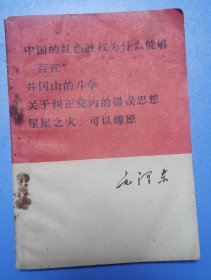 中国的红色政权为什么能够
存在?
井冈山的斗争
关于纠正党内的错误思想
星星之火，可以燎原
毛泽东